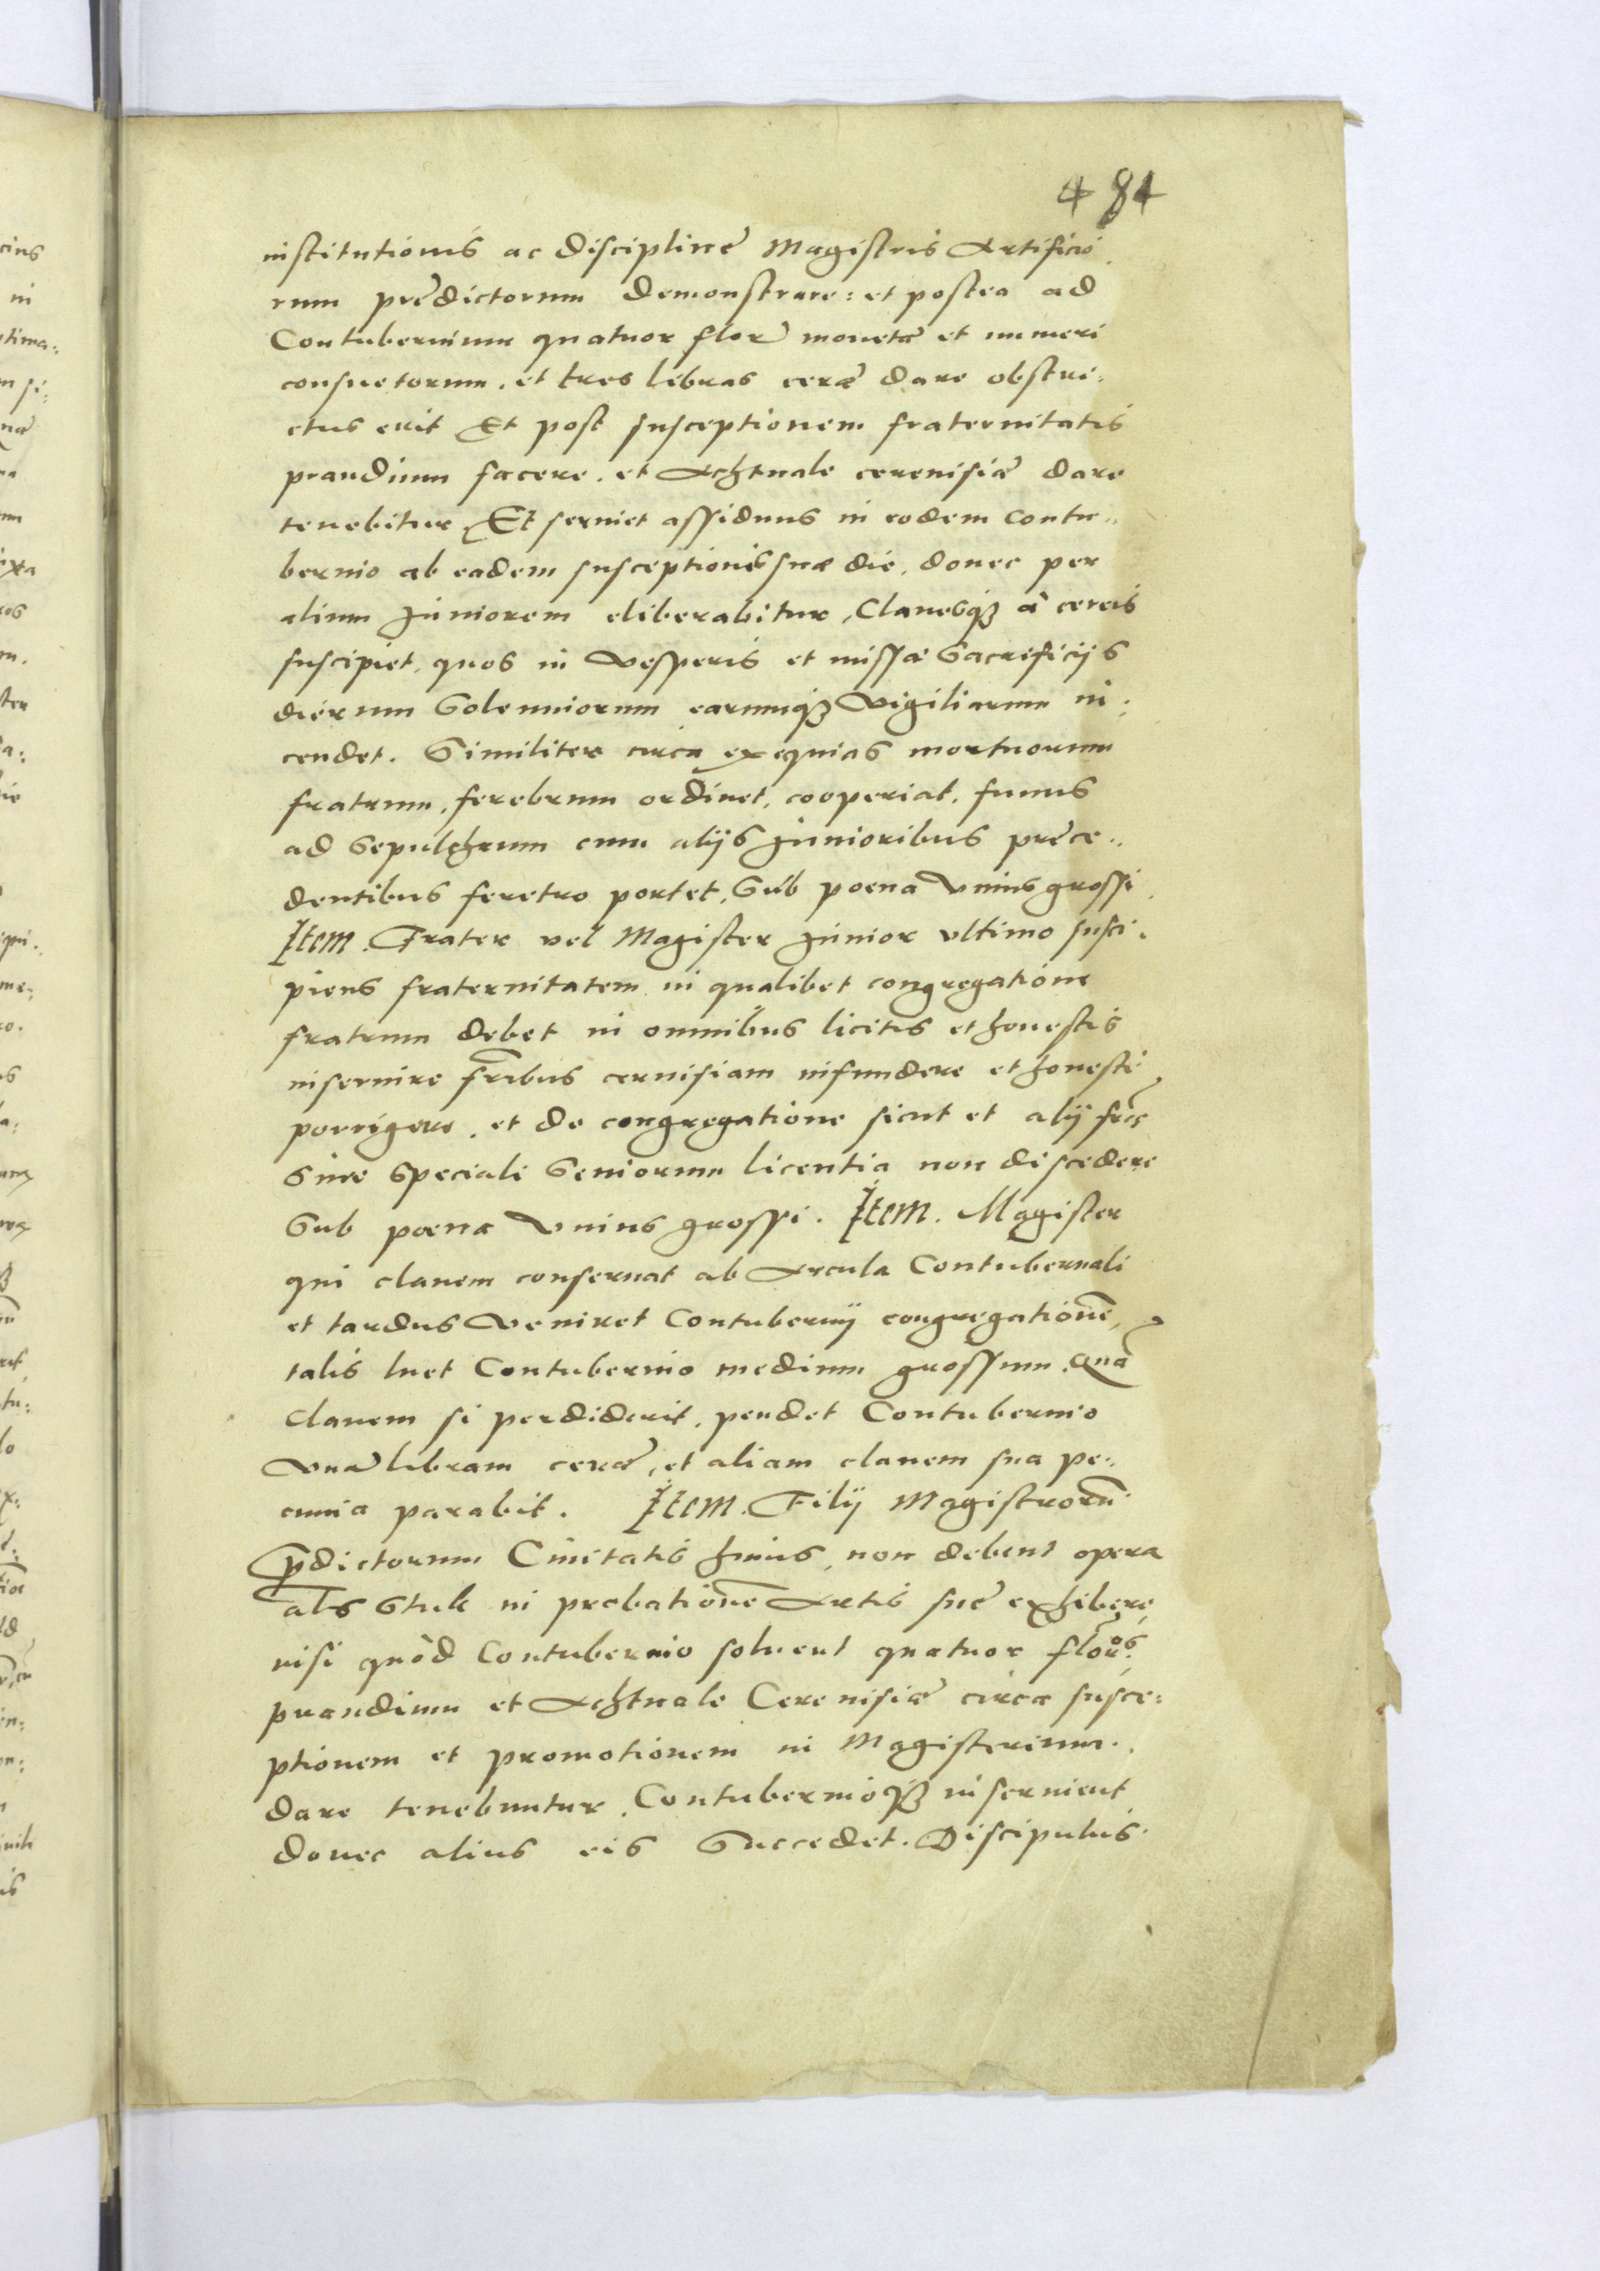 4 84
institutionis ac discipline Magistris Artificio
rum predictorum demonstrare: et postea ad
Contubernium quatuor flor monetæ et numeri
consuetorum. et tres libras ceræ dare obstri:
ctus erit Et post susceptionem fraternitatis
prandium facere. et Achtuale cereuisiæ dare
tenebitur. Et seruiet assiduus in eodem contu:
bernio ab eadem susceptionis suæ die, donec per
alium Juniorem eliberabitur, Clauesq₃ à cereis
suscipiet, quos in Vesperis et missæ Sacrificijs
dierum Solenniorum earumq₃ Vigiliarum in:
cendet. Similiter circa exequias mortuorum
fratrum, ferebrum ordinet, cooperiat, funus
ad Sepulchrum cum alijs Junioribus prece:
dentibus feretro portet, Sub poena Vnius grossi.
Item. Frater vel Magister Junior vltimo susci:
piens fraternitatem in qualibet congregatione
fratrum debet in omnibus licitis et honestis
inseruire fribus ceruisiam infundere et honeste
porrigere. et de congregatione sicut et alij frēs
sine speciali Seniorum licentia non discedere
Sub poena Vnius grossi. Item. Magister
qui clauem conseruat ab Arcula Contubernali
et tardus Veniret Contubernij congregationē,
talis luet Contubernio medium grossum. Quā
Clauem si perdiderit, pendet Contubernio
Vnā libram ceræ, et aliam clauem sua pe:
cunia parabit. Item. Filij Magistrorū
p̄dictorum Ciuitatis huius, non debent opera
als Stuk in probationē Artis sue exhibere,
nisi quòd Contubernio soluent quatuor flōros,
prandium et Achtuale Cereuisiæ circa susce:
ptionem et promotionem in Magisterium.
dare tenebuntur, Contubernioq₃ inseruient
donec alius eis Succedet. Discipulus